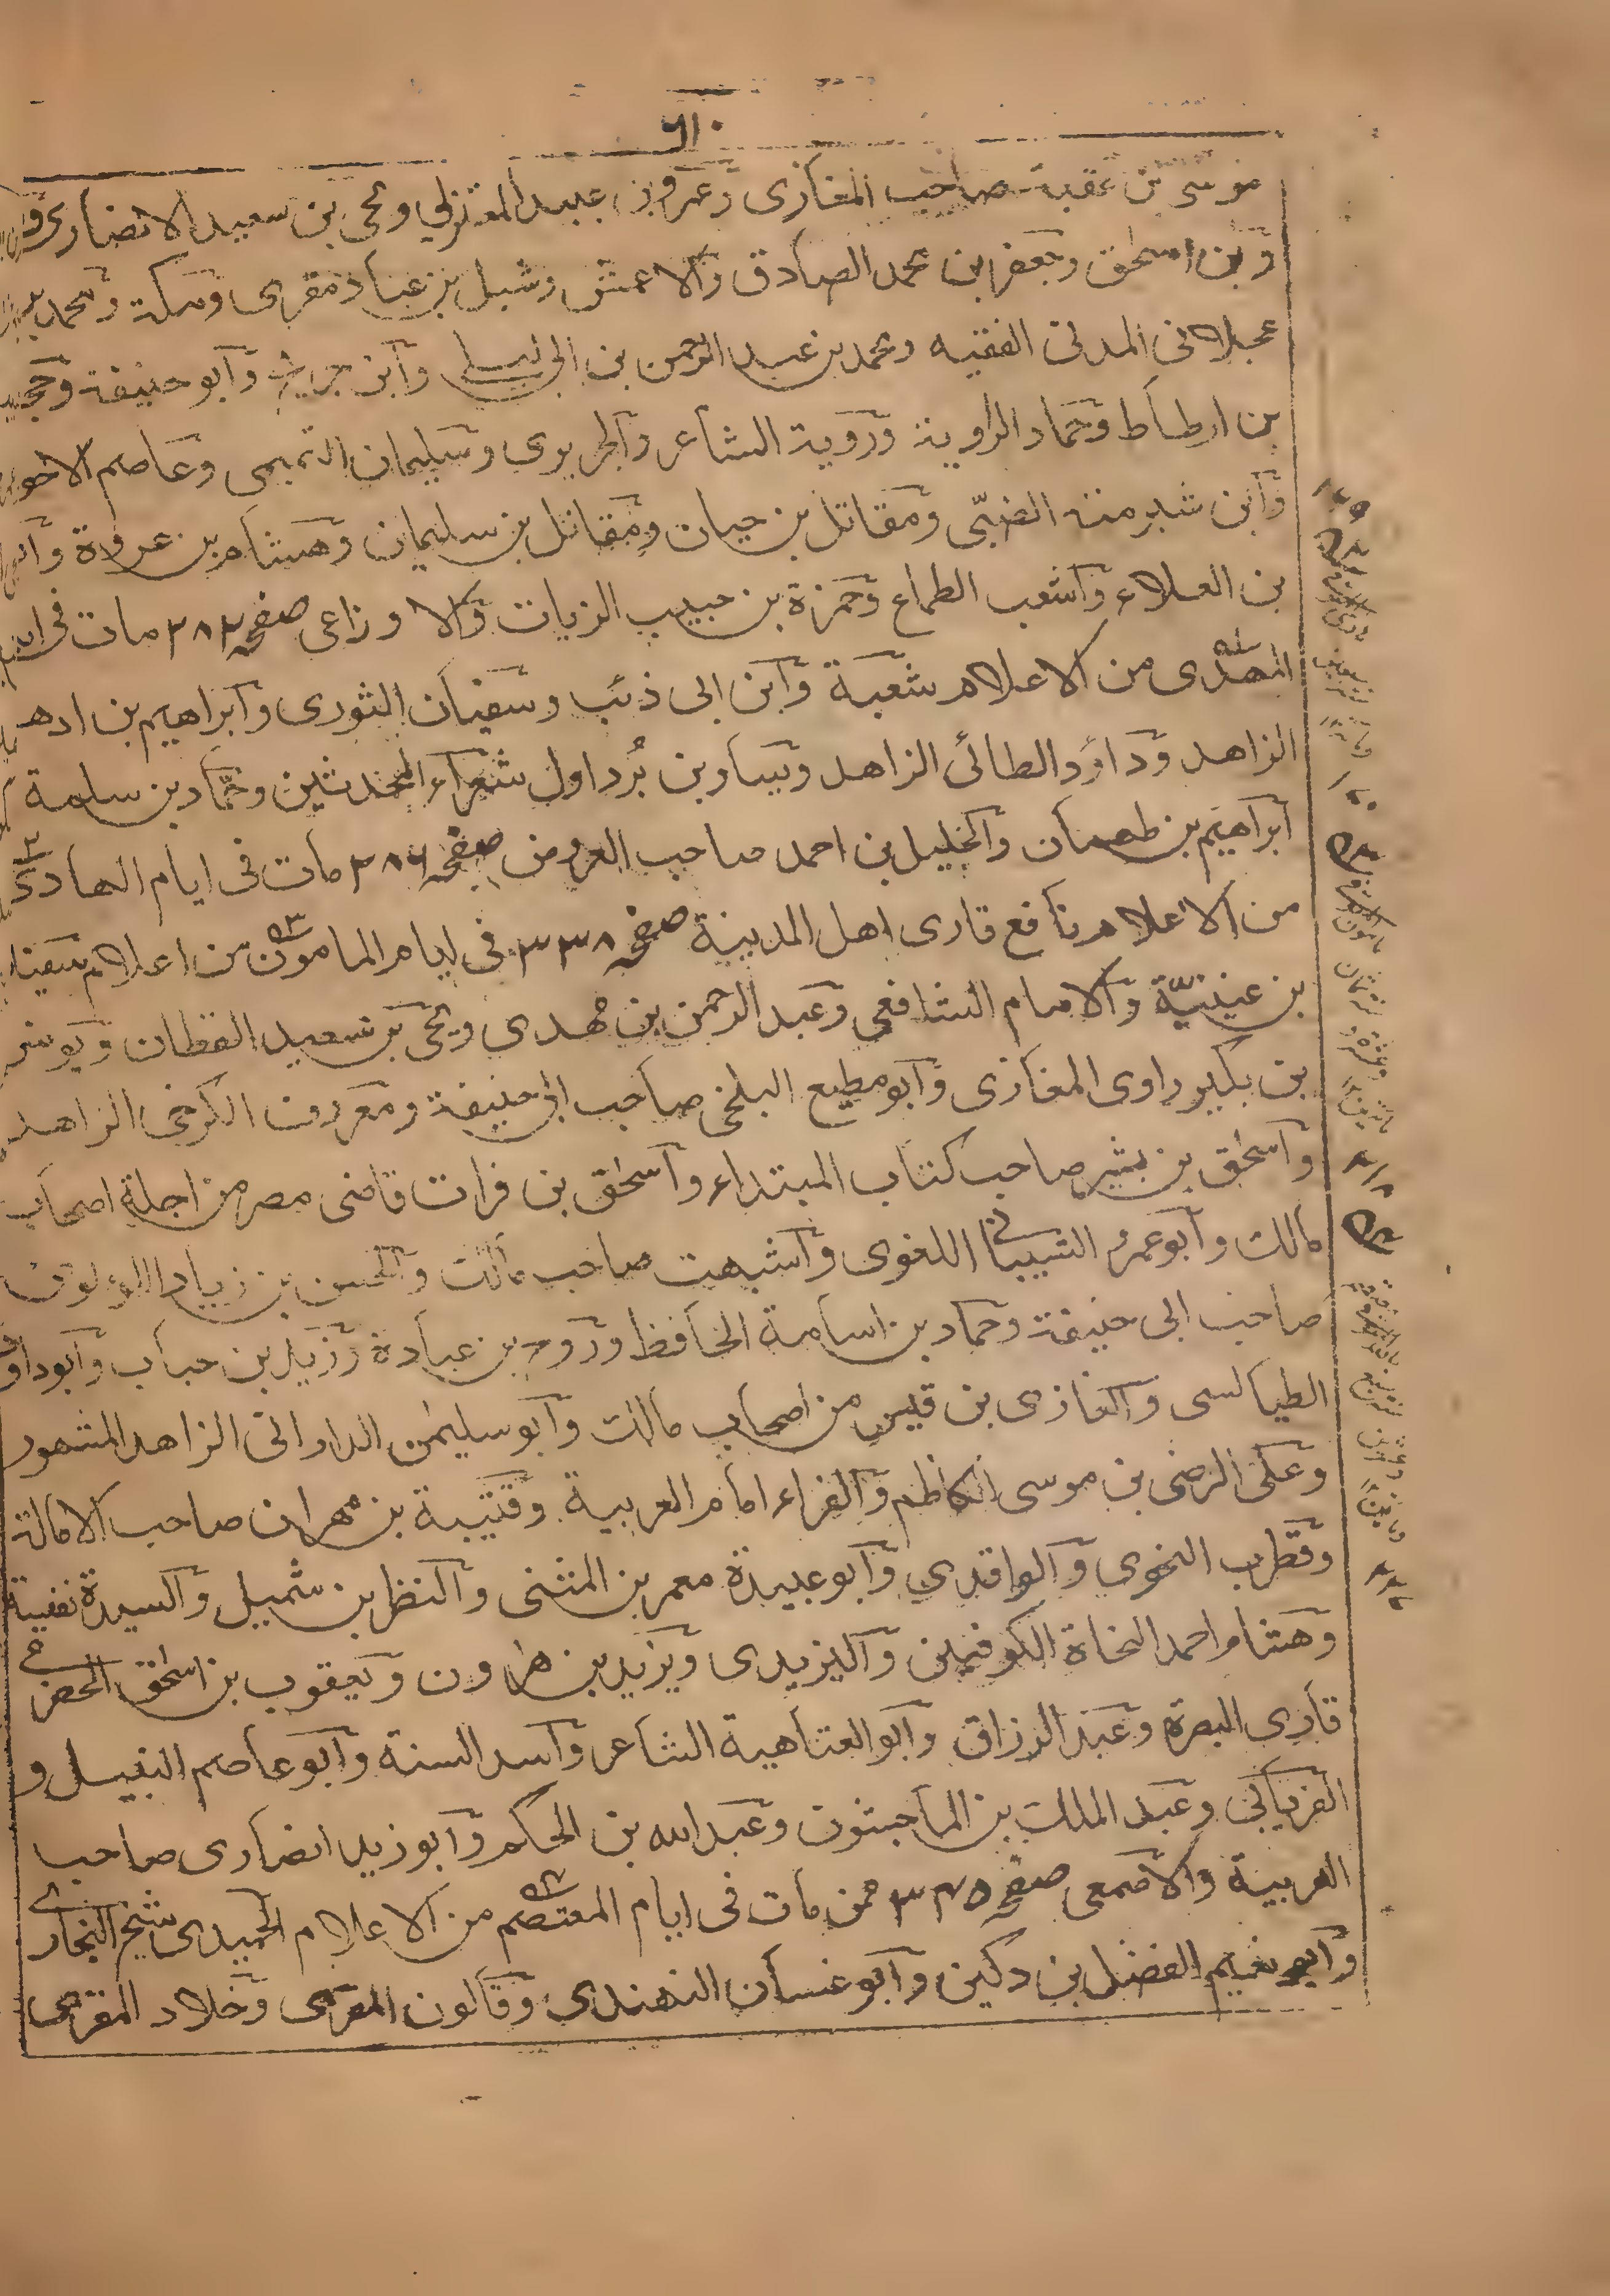 موسى بن عقبة صاحب المغازى وعمرو بن عبيد المعتزلي ويحي بن سعيد الانصارى
وبن اسحٰق وجعفر بن محمد الصادق والاعمش وشبل بن عباد مقرى ومكة ومحمد بن
عجلانى المدنى الفقيه ومحمد بن عبد الرحمن بن ابى ليلى وابن جريج وابو حنيفة وحجاج
بن ارطاط وحماد الراوية وروية الشاعر والجريرى وسليمان التميمى وعاصم الاحول
وابن شبرمة الضبّى ومقاتل بن حيان ومقاتل بن سليمان وهشام بن عروة وابو
بن العلاء واشعب الطماع وحمزة بن حبيب الزيات والاوزاعى صفحه ٢٨٢ مات فى ايام
المهدى من الاعلام شعبة وابن ابى ذئب وسفيان الثورى وابراهيم بن ادهم
الزاهد وداؤد الطائى الزاهد وبشار بن بُرد اول شعراء المحدثين وحمّاد بن سلمة
ابراهيم بن طهمان والخليل بن احمد صاحب العروض صفحه ٢٨٦ مات فى ايام الهادى
من الاعلام نافع قارى اهل المدينة صفحه ٣٣٨ فى ايام المامون من اعلام سفيان
بن عينيّة والامام الشافعى وعبد الرحمن بن مهدى ويحى بن سعيد القطان ويونس
بن بكير راوى المغازى وابو مطيع البلخى صاحب ابى حنيفة ومعروف الكرخى الزاهد
واسحٰق بن بشير صاحب كتاب المبتداء واسحٰق بن فرات قاضى مصر من اجلة اصحاب
مالك وابو عمرو الشيبانى اللغوى واشبهت صاحب مالك والحسن بن زياد اللولوى
صاحب ابى حنيفة وحماد بن اسامة الحافظ وروح بن عبادة وزيد بن حباب وابو داود
الطيالسى والغازى بن قيس من اصحاب مالك وابو سليمٰن الداراتى الزاهد المشهور
وعلى الرضى بن موسى الكاظم والفراء امام العربية وقتيبة بن مهران صاحب الامالة
وقطرب النحوى والواقدى وابو عبيدة معمر بن المثنى والنظر بن شميل والسيدة نفيسة
وهشام احمد النحاة الكوفيين واليزيدى ويزيد بن هارون ويعقوب بن اسحٰق الحضرمى
قارى البصرة وعبد الرزاق وابو العتاهية الشاعر واسد السنة وابو عاصم النبيل و
الفريابى وعبد الملك بن الماجشون وعبد الله بن الحكم وابو زيد انصارى صاحب
العربية والاصمعى صفحه ٣٤٥ ممن مات فى ايام المعتصم من الاعلام الحميدى شيخ البخارى
وابو نعيم الفضل بن دكين وابو غسان النهندى وقالون المقرى وخلاد المقرى